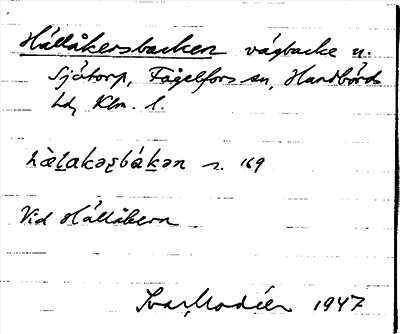 Hållåkersbacken vägbacke n.
Sjötorp, Fågelfors sn, Handbörds
hd, Klm. l.
hàlakəʂbákən n. 169
Vid Hållåkern
Ivar Modéer 1947